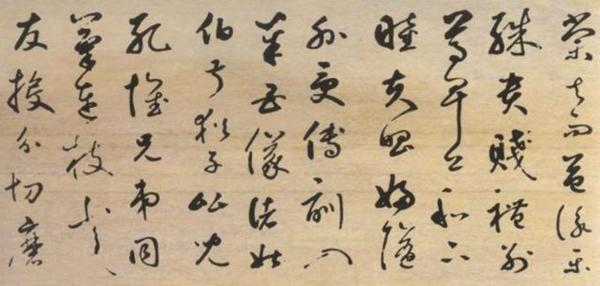 棠去而益詠樂
殊貴賤禮別
尊卑上和下
睦夫唱婦隨
外受傅訓入
奉母儀諸姑
伯叔猶子比兒
孔懷兄弟同
氣連枝交
友投分切磨